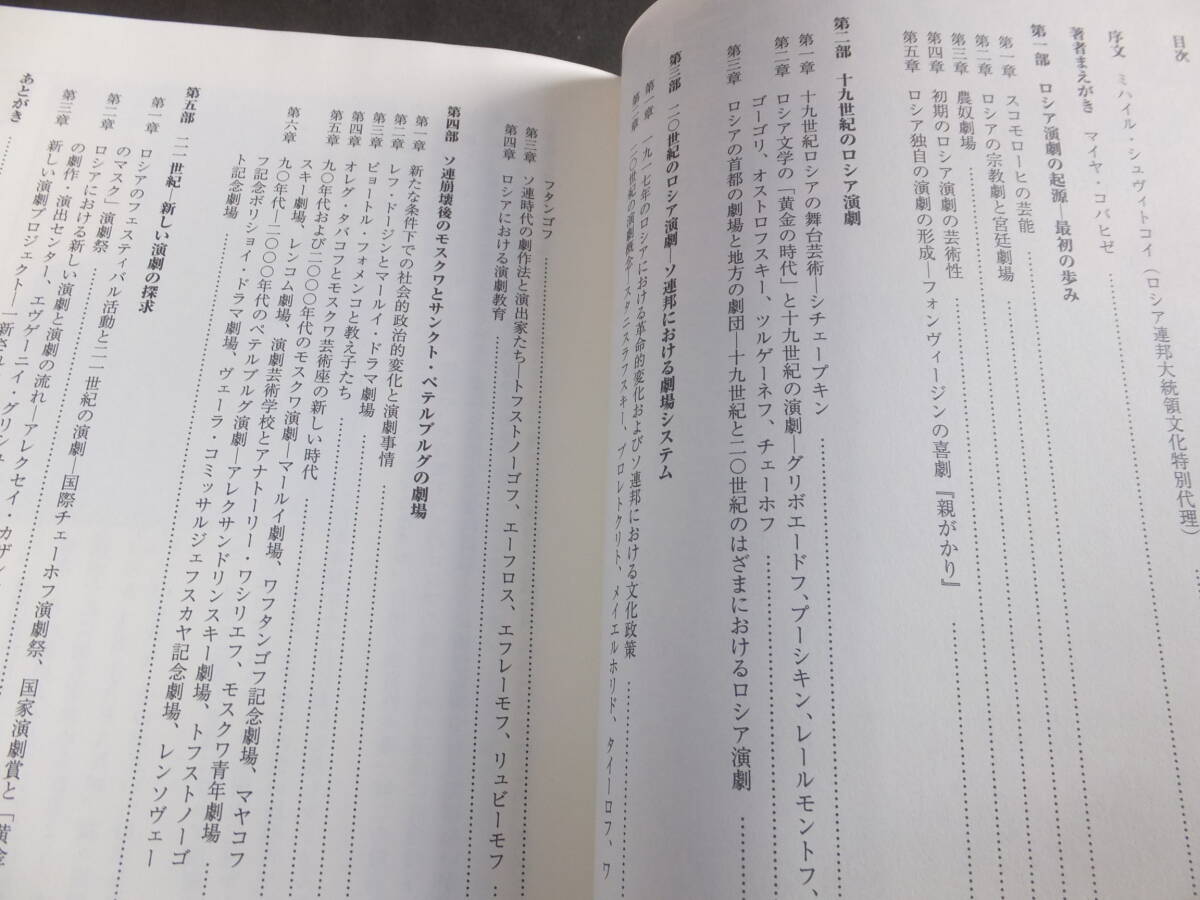 目次
序文 ミハイル・シュヴィトコイ（ロシア連邦大統領文化特別代理）
著者まえがき マイヤ・コバヒゼ
第一部 ロシア演劇の起源―最初の歩み
第一章 スコモローヒの芸能
第二章 ロシアの宗教劇と宮廷劇場
第三章 農奴劇場
第四章 初期のロシア演劇の芸術性
第五章 ロシア独自の演劇の形成―フォンヴィージンの喜劇『親がかり』
第二部 十九世紀のロシア演劇
第一章 十九世紀ロシアの舞台芸術―シチェープキン
第二章 ロシア文学の「黄金の時代」と十九世紀の演劇―グリボエードフ、プーシキン、レールモントフ、
ゴーゴリ、オストロフスキー、ツルゲーネフ、チェーホフ
第三章 ロシアの首都の劇場と地方の劇団―十九世紀と二〇世紀のはざまにおけるロシア演劇
第三部 二〇世紀のロシア演劇―ソ連邦における劇場システム
第一章 一九一七年のロシアにおける革命的変化およびソ連邦における文化政策
第二章 二〇世紀の演劇概念―スタニスラフスキー、プロレトクリト、メイエルホリド、タイーロフ、ワ
フタンゴフ
第三章 ソ連時代の劇作法と演出家たち―トフストノーゴフ、エーフロス、エフレーモフ、リュビーモフ
第四章 ロシアにおける演劇教育
第四部 ソ連崩壊後のモスクワとサンクト・ペテルブルグの劇場
第一章 新たな条件下での社会的政治的変化と演劇事情
第二章 レフ・ドージンとマールイ・ドラマ劇場
第三章 ピョートル・フォメンコと教え子たち
第四章 オレグ・タバコフとモスクワ芸術座の新しい時代
第五章 九〇年代および二〇〇〇年代のモスクワ演劇―マールイ劇場、ワフタンゴフ記念劇場、マヤコフ
スキー劇場、レンコム劇場、演劇芸術学校とアナトーリー・ワシリエフ、モスクワ青年劇場
第六章 九〇年代―二〇〇〇年代のペテルブルグ演劇―アレクサンドリンスキー劇場、トフストノーゴ
フ記念ボリショイ・ドラマ劇場、ヴェーラ・コミッサルジェフスカヤ記念劇場、レンソヴェー
ト記念劇場
第五部 二一世紀 新しい演劇の探求
第一章 ロシアのフェスティバル活動と二一世紀の演劇―国際チェーホフ演劇祭、国家演劇賞と「黄金
のマスク」演劇祭
第二章 ロシアにおける新しい演劇と演劇の流れ―アレクセイ・カザン
の劇作・演出センター、エヴゲーニイ・グリシ
第三章 新しい演劇プロジェクト―
あとがき